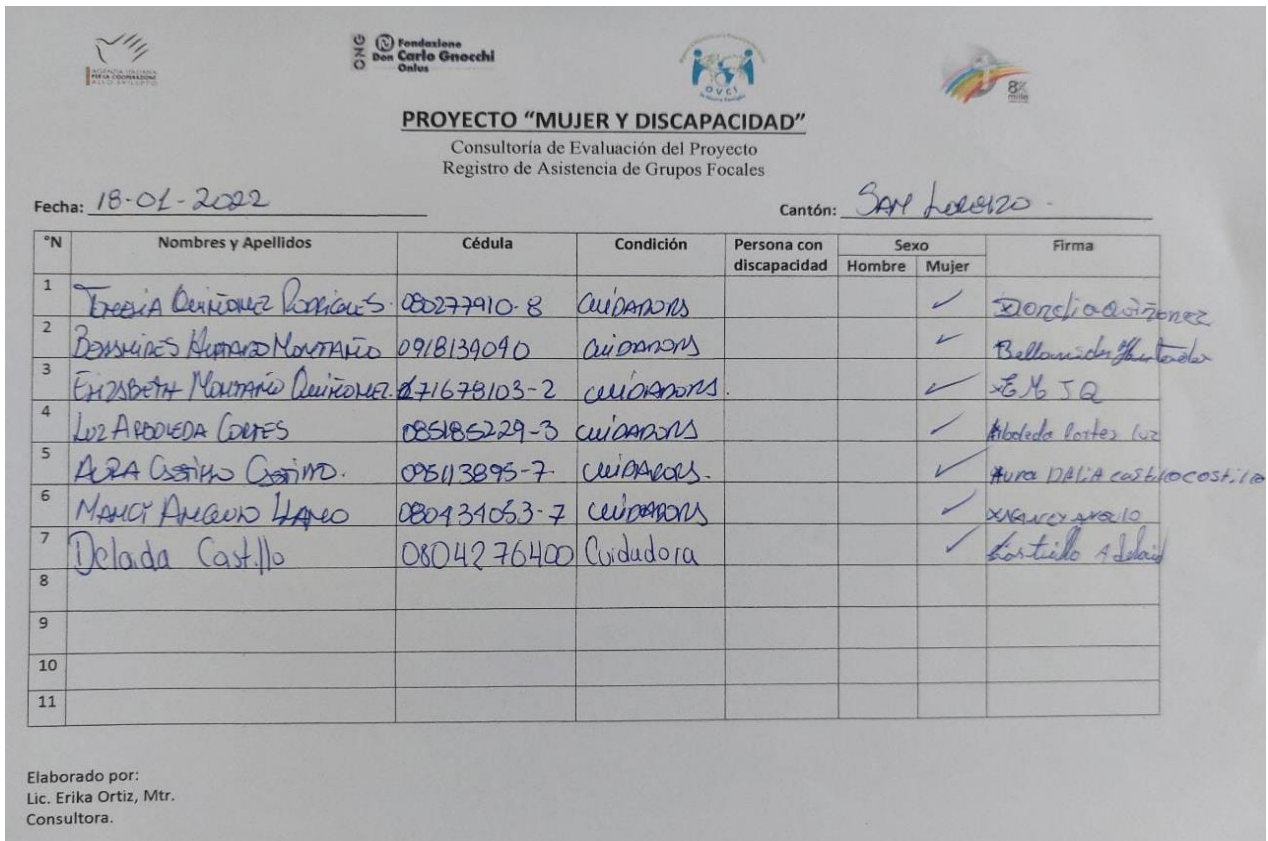 AGENZIA ITALIANA
PER LA COOPERAZIONE
ALLO SVILUPPO
ONG Fondazione
Don Carlo Gnocchi
Onlus
OVCI
8x
mille
PROYECTO “MUJER Y DISCAPACIDAD”
Consultoría de Evaluación del Proyecto
Registro de Asistencia de Grupos Focales
Fecha: 18-01-2022 Cantón: SAN LORENZO.
°N Nombres y Apellidos Cédula Condición Persona con discapacidad Sexo Firma
Hombre Mujer
1 QUIÑONEZ 080277910-8 CUIDADORA ✓ Quiñonez
2 HURTADO MONTAÑO 0918139090 CUIDADORA ✓ Hurtado
3 ELIZABETH MONTAÑO QUIÑONEZ. 71678103-2 CUIDADORA. ✓ EMJQ
4 LUZ ARBOLEDA CORTES 085185229-3 CUIDADORA ✓ Arboleda Cortez luz
5 AURA CASTILLO CASTILLO. CUIDADORA. ✓ Aura DALiA castillo costillo
6 NANCY ANGULO LLANO 080434053-7 CUIDADORA ✓ NANCY ANGULO
7 Delaida Castillo 0804276400 Cuidadora ✓ Castiello Adelaid
8
9
10
11
Elaborado por:
Lic. Erika Ortiz, Mtr.
Consultora.